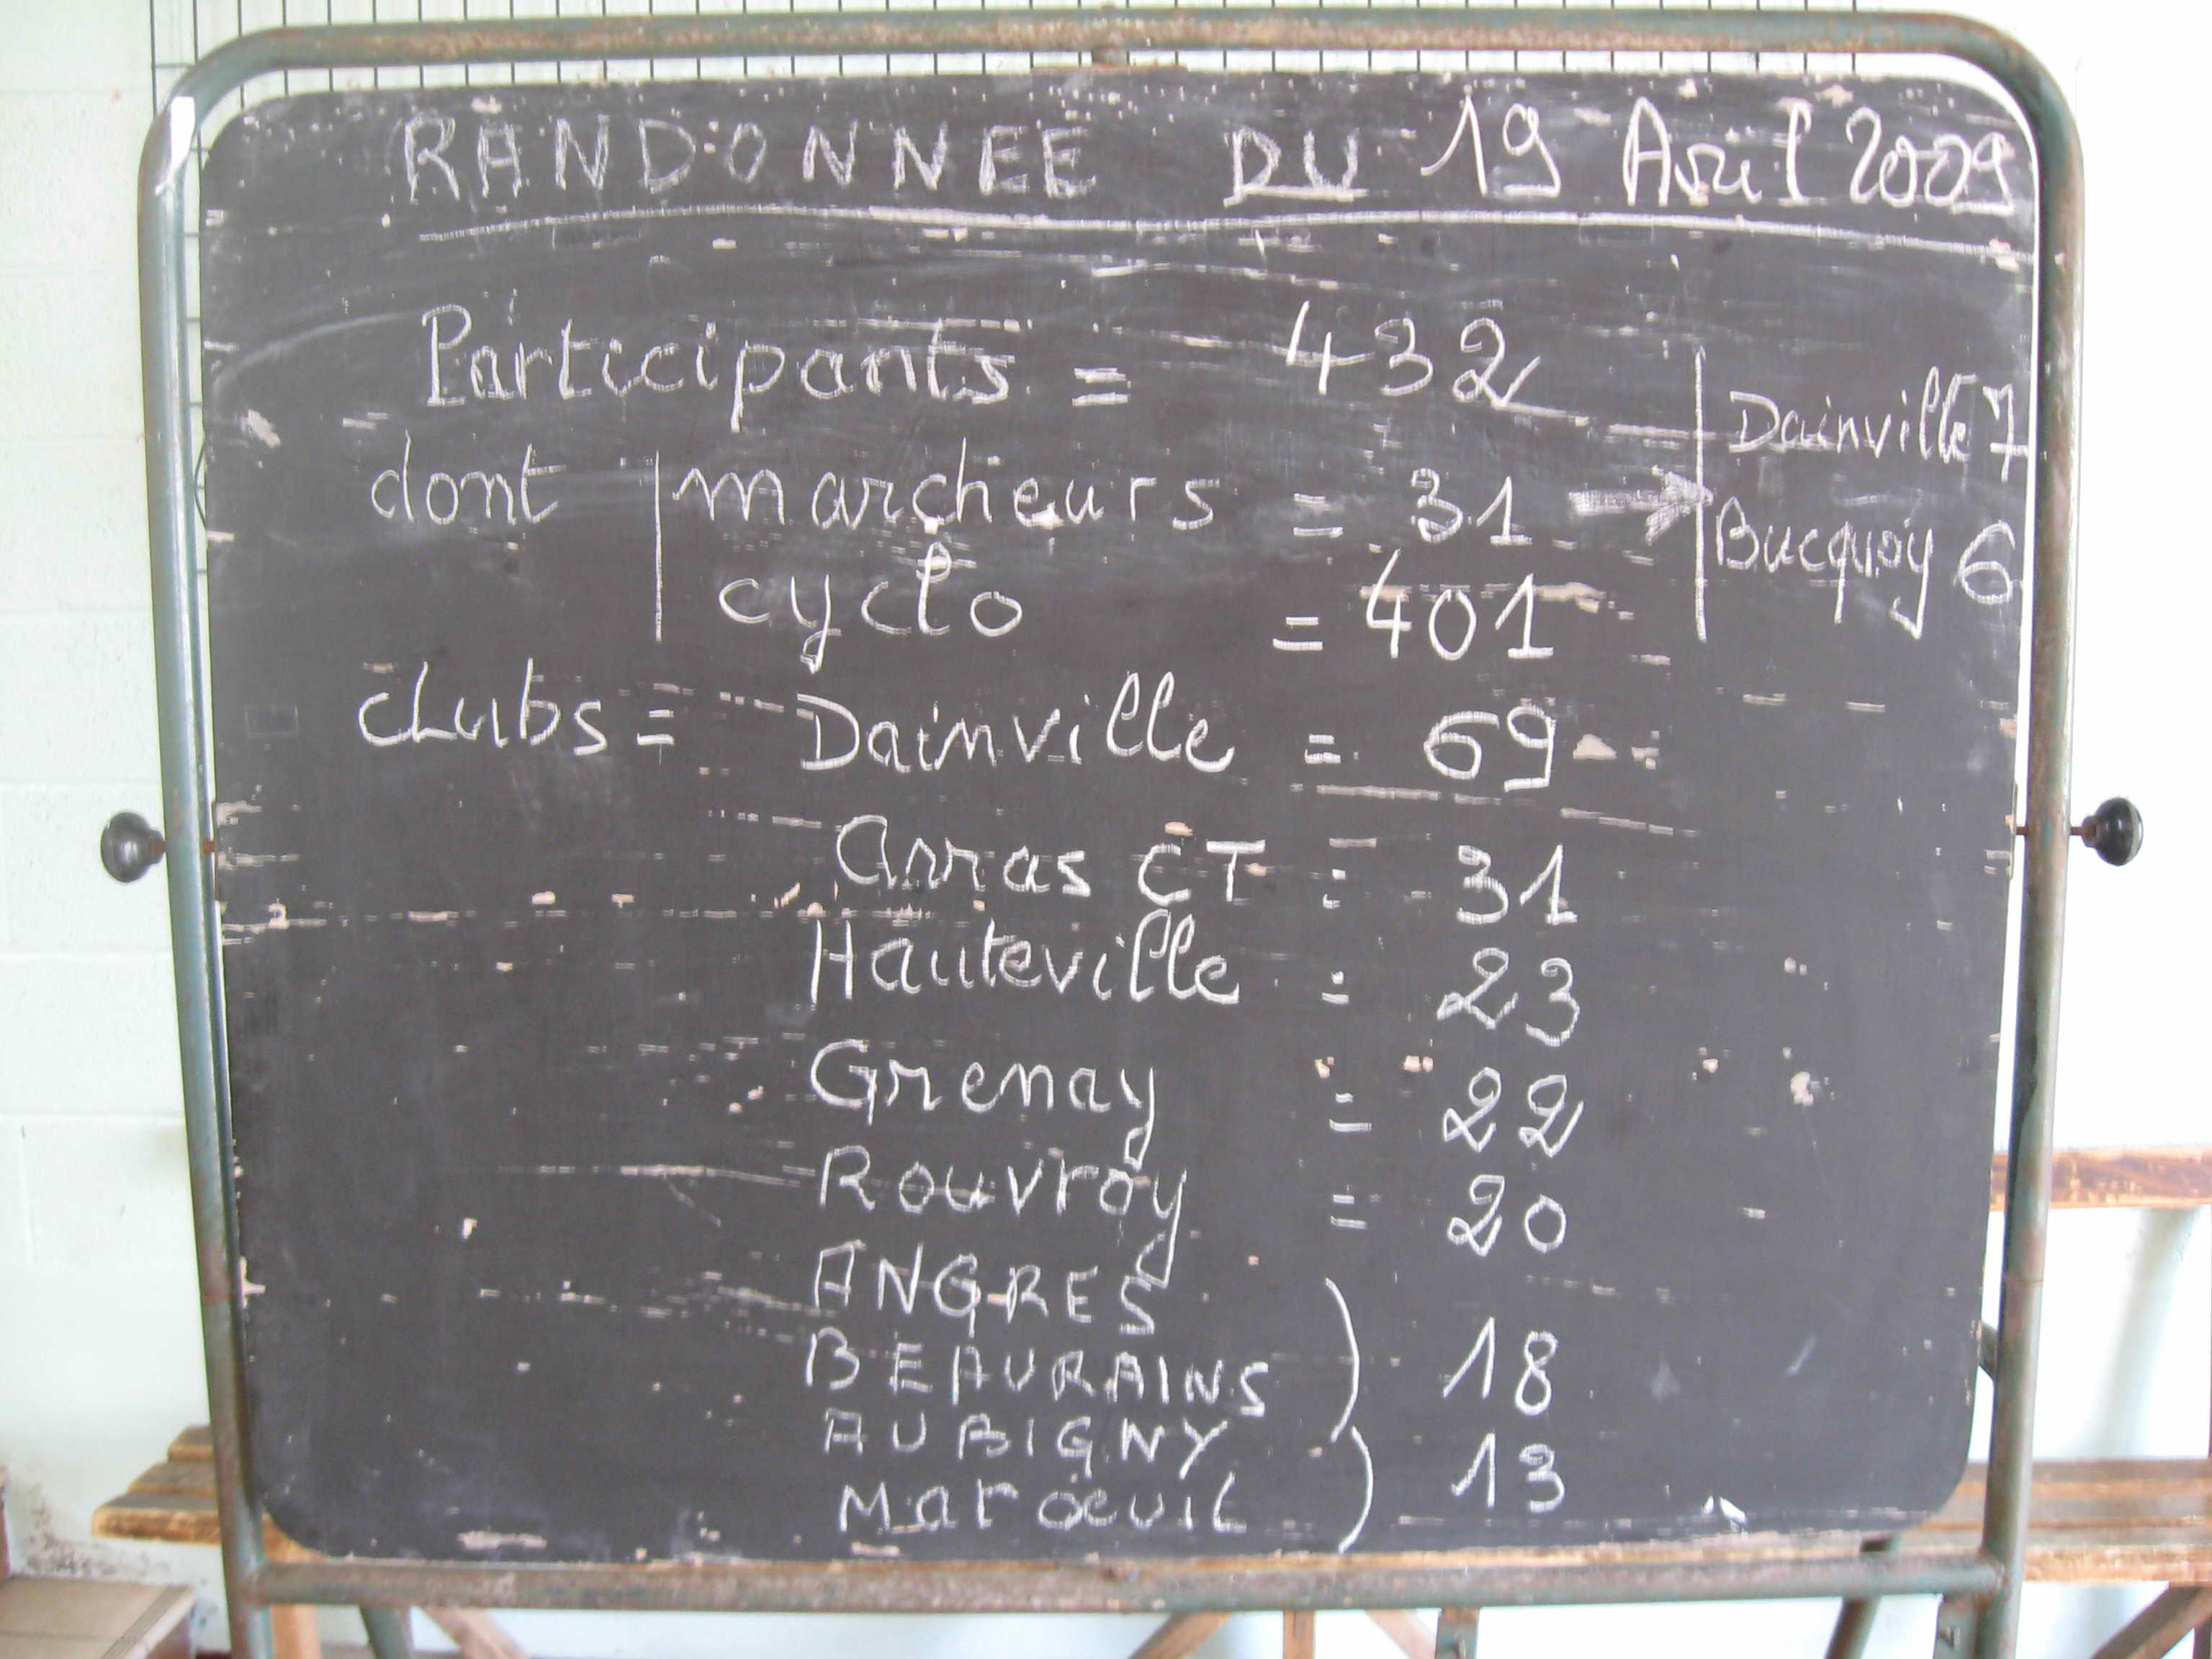 RANDONNEE DU 19 Avril 2009
Participants = 432
dont marcheurs = 31 → Dainville 7
Bucquoy 6
cyclo = 401
clubs = Dainville = 69
Arras CT : 31
Hauteville : 23
Grenay = 22
Rouvroy = 20
ANGRES
BEAURAINS ) 18
AUBIGNY
Maroeuil ) 13